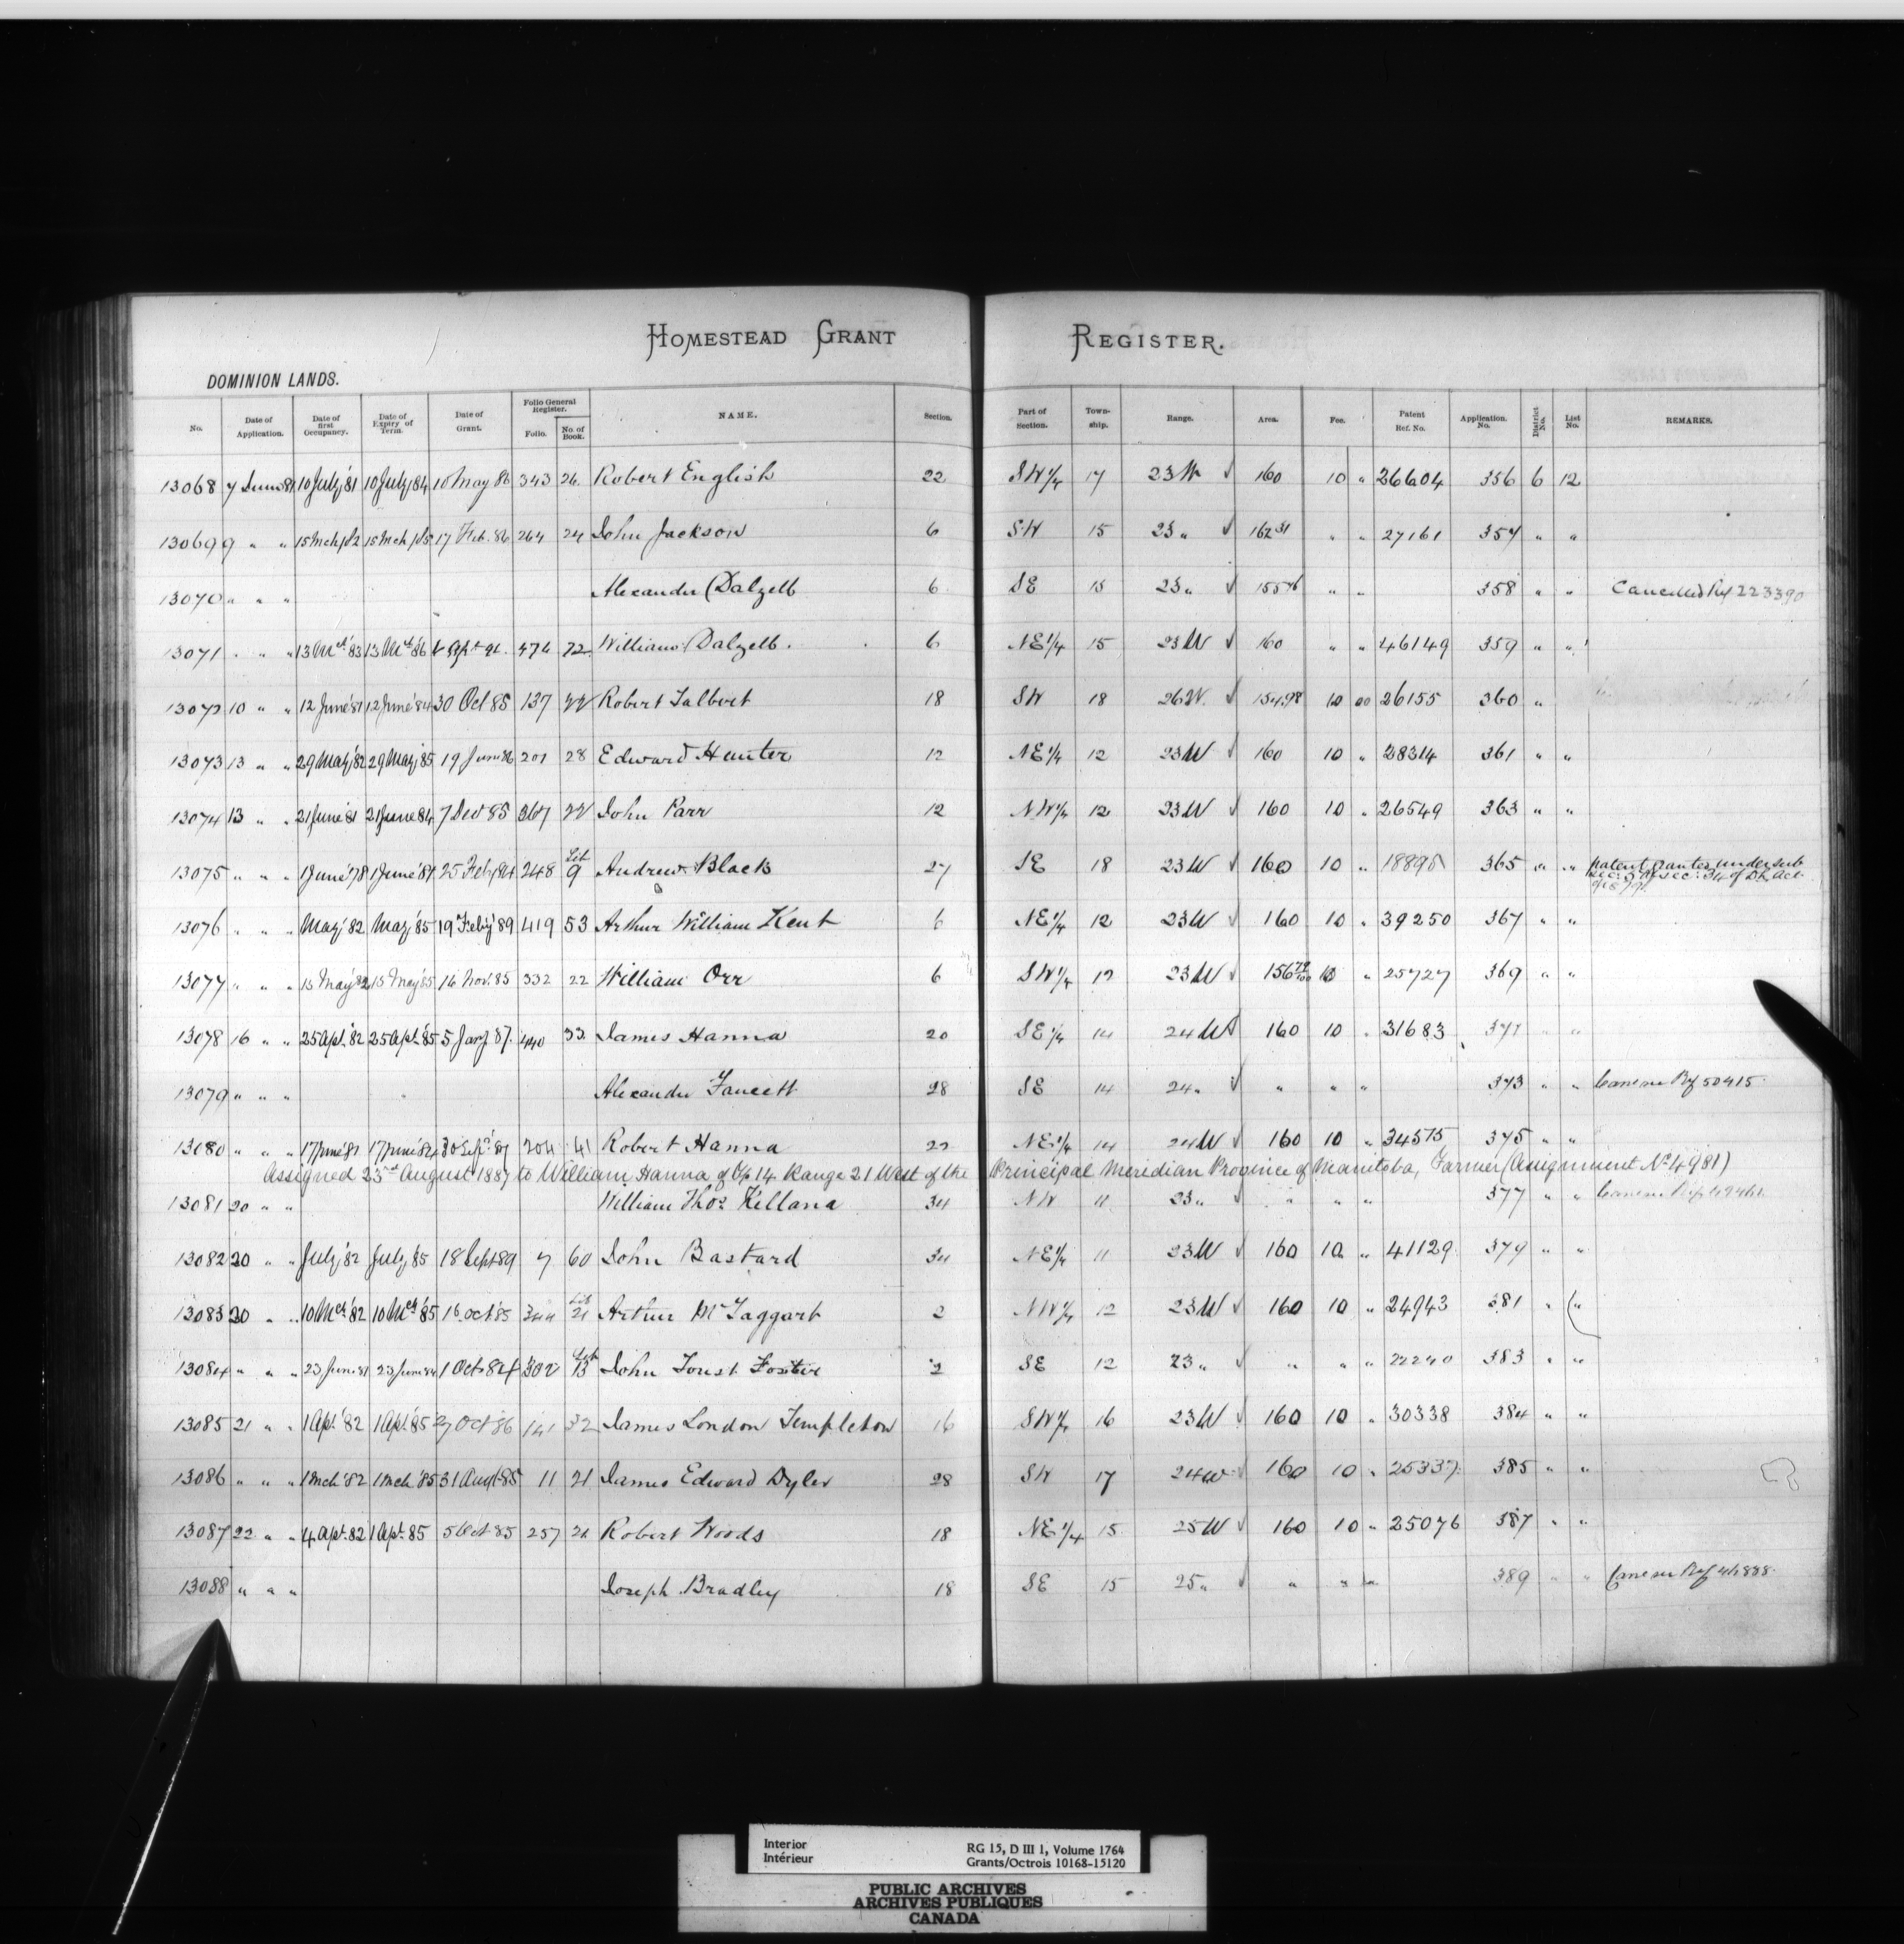 HOMESTEAD GRANT REGISTER.
DOMINION LANDS.
No. Date of Application. Date of first Occupancy. Date of Expiry of Term. Date of Grant. Folio General Register. Folio. No. of Book. NAME. Section. Part of Section. Town-ship. Range. Area. Fee. Patent Ref. No. Application. No. District No. List No. REMARKS.
13068 7 June 81 10 July '81 10 July '84 10 May 86 343 26 Robert English 22 SW 1/4 17 23 W 160 10 " 26604 356 6 12
13069 9 " " 15 Mch /82 15 Mch /85 17 Feb. 86 264 24 John Jackson 6 SW 15 23 " 162 31 " " 27161 357 " "
13070 " " " Alexander Dalzell 6 SE 15 23 " " " 358 " " Cancelled Ref 223390
13071 " " " 13 Mch '83 13 Mch '86 474 72 William Dalzell. 6 NE 1/4 15 23 W 160 " " 46149 359 " "
13072 10 " " 12 June '81 12 June '84 30 Oct 85 137 22 Robert Talbert 18 SW 18 26 W. 154.98 10 00 26155 360 "
13073 13 " " 29 May '82 29 May '85 19 June 86 201 28 Edward Hunter 12 NE 1/4 12 23 W 160 10 " 28314 361 " "
13074 13 " " 21 June 81 21 June 84 7 Dec 85 367 22 John Parr 12 NW 1/4 12 23 W 160 10 " 26549 363 " "
13075 " " " 1 June '78 1 June '81 25 Feb /84 248 Lib 9 Andrew Black 27 SE 18 23 W 160 10 " 18895 365 " " Patent granted under sub sec: 9 of sec: 34 of DL Act of 1879.
13076 " " " May '82 May '85 19 Feby '89 419 53 Arthur William Kent 6 NE 1/4 12 23 W 160 10 " 39250 367 " "
13077 " " " 15 May '82 15 May '85 16 Nov. 85 332 22 William Orr 6 SW 1/4 12 23 W 156 72/100 10 " 25727 369 " "
13078 16 " " 25 Apl. '82 25 Apl. '85 5 Jany 87. 440 33 James Hanna 20 SE 1/4 14 24 W 160 10 " 31683 371 " "
13079 " " " Alexander Faucett 28 SE 14 24 " " " " 373 " " Cancelled Ref 50415
13080 " " " 17 June '81 17 June '84 30 Sept '87 204 41 Robert Hanna 22 NE 1/4 14 24 W 160 10 " 34575 375 " "
Assigned 23rd August 1887 to William Hanna of Tp 14 Range 21 West of the Principal Meridian Province of Manitoba, Farmer (Assignment No 4981)
13081 20 " " William Thos. Killana 34 NW 11 23 " " " " 377 " "
13082 20 " " July '82 July 85 18 Sept 89 7 60 John Bastard 34 NE 1/4 11 23 W 160 10 " 41129 379 " "
13083 20 " " 10 Mch '82 10 Mch '85 16 Oct 85 344 Lib 21 Arthur McTaggart 2 NW 1/4 12 23 W 160 10 " 24943 381 " "
13084 " " " 23 June 81 23 June 84 1 Oct 84 302 Lib 13 John Foust Foster 2 SE 12 23 " " " " 22240 383 " "
13085 21 " " 1 Apl. '82 1 Apl. '85 27 Oct 86 141 32 James London Templeton 16 SW 1/4 16 23 W 160 10 " 30338 384 " "
13086 " " " 1 Mch '82 1 Mch '85 31 Augt 85 11 21 James Edward Dyler 28 SW 17 24 W 160 10 " 25337 385 " "
13087 22 " " 4 Apl. 82 1 Apl. 85 5 Oct 85 257 21 Robert Woods 18 NE 1/4 15 25 W 160 10 " 25076 387 " "
13088 " " " Joseph Bradley 18 SE 15 25 " " " " 389 " " Cancelled Ref 41888
Interior
Intérieur
RG 15, D III 1, Volume 1764
Grants/Octrois 10168-15120
PUBLIC ARCHIVES
ARCHIVES PUBLIQUES
CANADA